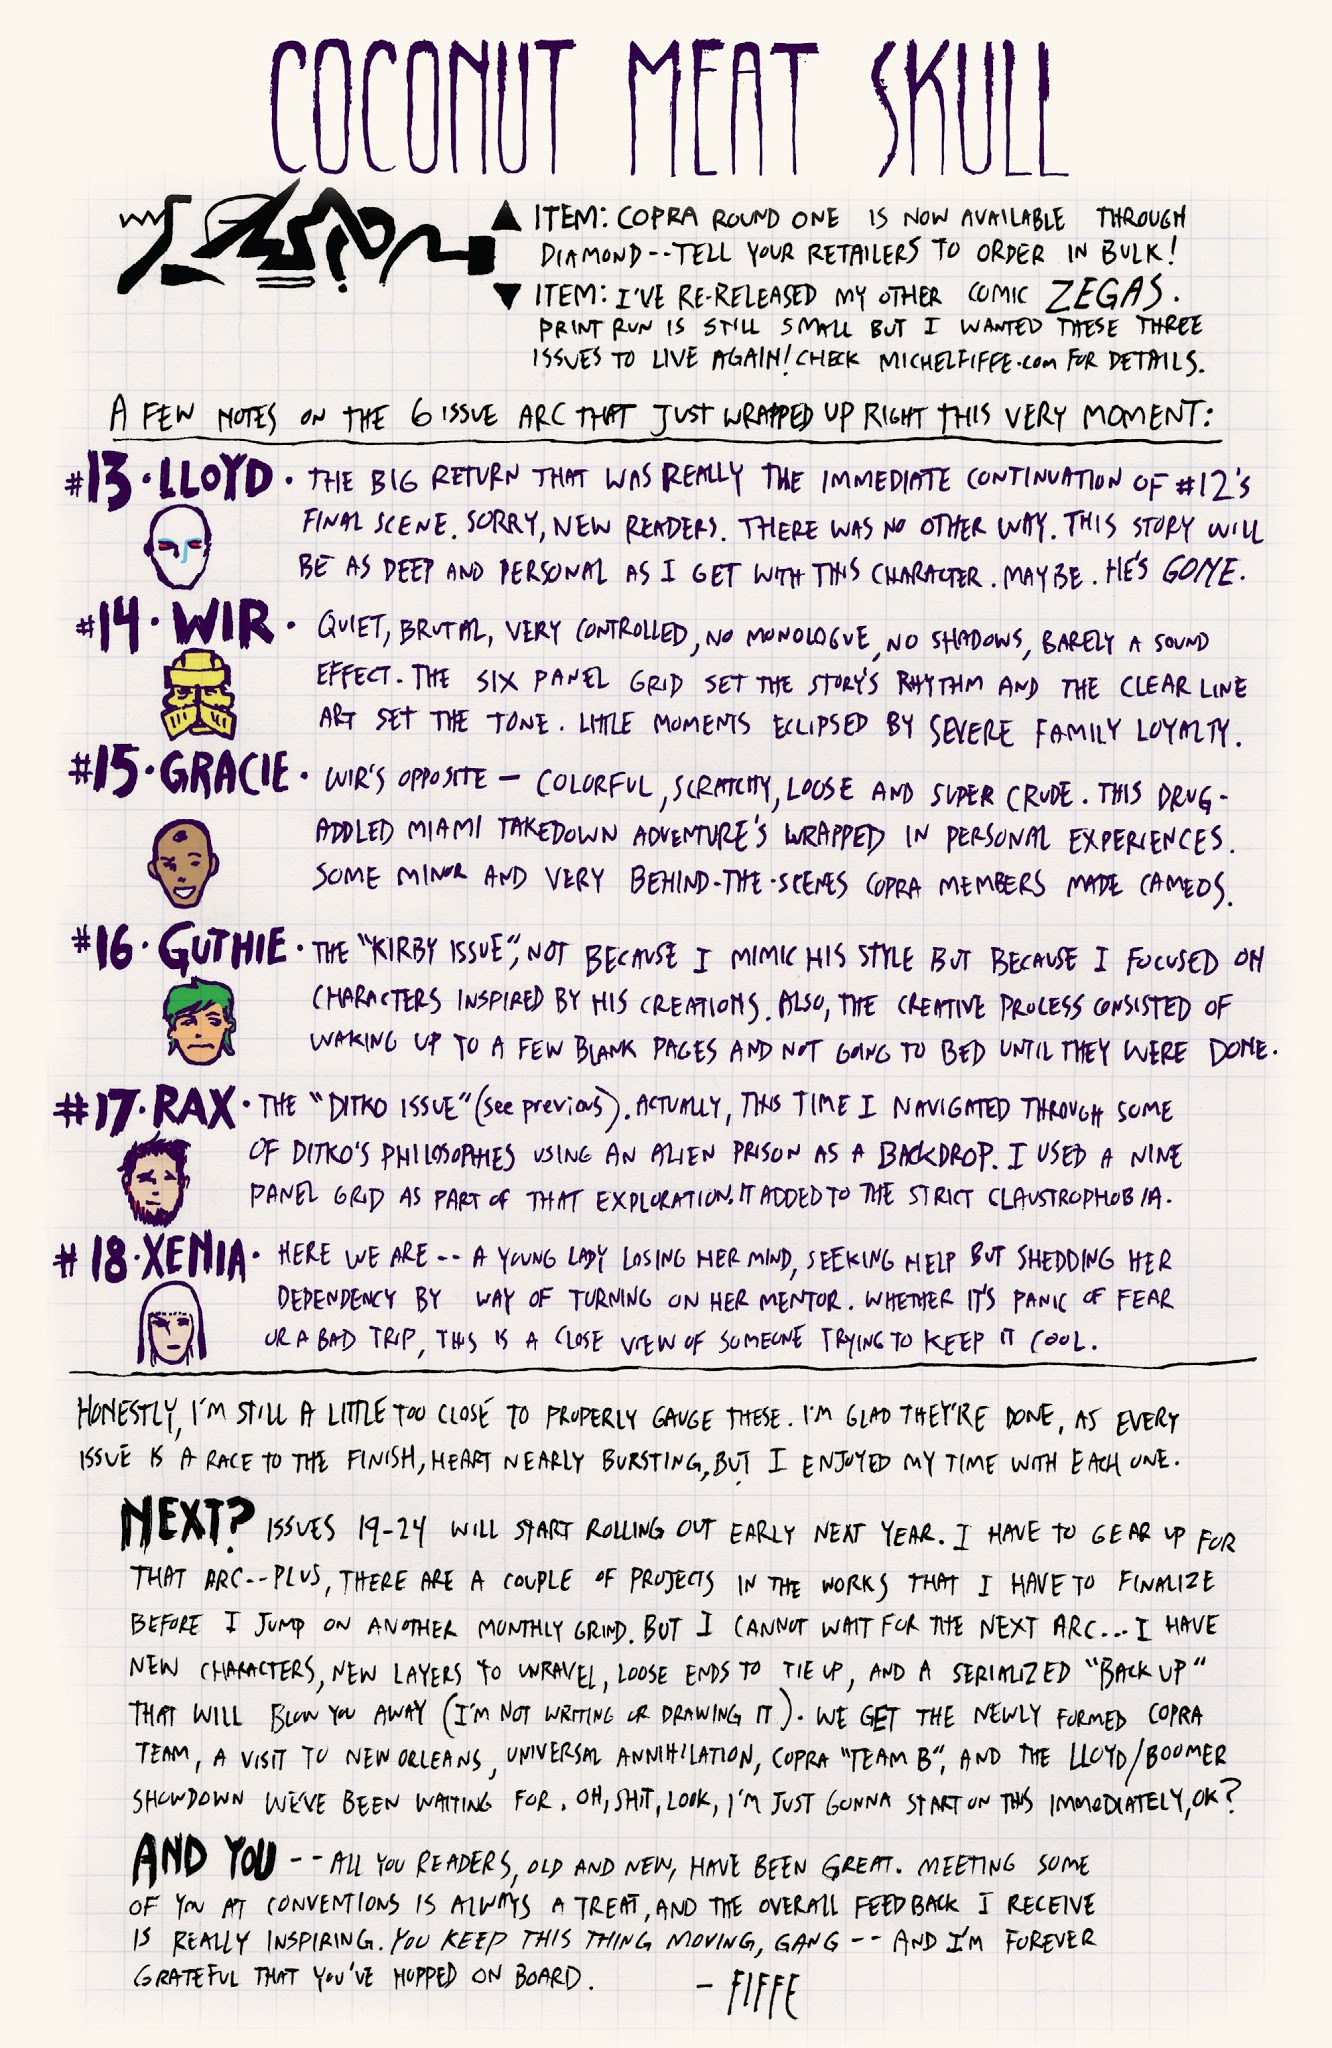 COCONUT MEAT SKULL
▲ ITEM: COPRA ROUND ONE IS NOW AVAILABLE THROUGH
DIAMOND--TELL YOUR RETAILERS TO ORDER IN BULK!
▼ ITEM: I'VE RE-RELEASED MY OTHER COMIC ZEGAS.
PRINT RUN IS STILL SMALL BUT I WANTED THESE THREE
ISSUES TO LIVE AGAIN! CHECK MICHELFIFFE.com FOR DETAILS.
A FEW NOTES ON THE 6 ISSUE ARC THAT JUST WRAPPED UP RIGHT THIS VERY MOMENT:
#13 · LLOYD · THE BIG RETURN THAT WAS REALLY THE IMMEDIATE CONTINUATION OF #12'S
FINAL SCENE. SORRY, NEW READERS. THERE WAS NO OTHER WAY. THIS STORY WILL
BE AS DEEP AND PERSONAL AS I GET WITH THIS CHARACTER. MAYBE. HE'S GONE.
#14 · WIR · QUIET, BRUTAL, VERY CONTROLLED, NO MONOLOGUE, NO SHADOWS, BARELY A SOUND
EFFECT. THE SIX PANEL GRID SET THE STORY'S RHYTHM AND THE CLEAR LINE
ART SET THE TONE. LITTLE MOMENTS ECLIPSED BY SEVERE FAMILY LOYALTY.
#15 · GRACIE · WIR'S OPPOSITE — COLORFUL, SCRATCHY, LOOSE AND SUPER CRUDE. THIS DRUG-
ADDLED MIAMI TAKEDOWN ADVENTURE'S WRAPPED IN PERSONAL EXPERIENCES.
SOME MINOR AND VERY BEHIND-THE-SCENES COPRA MEMBERS MADE CAMEOS.
#16 · GUTHIE · THE "KIRBY ISSUE", NOT BECAUSE I MIMIC HIS STYLE BUT BECAUSE I FOCUSED ON
CHARACTERS INSPIRED BY HIS CREATIONS. ALSO, THE CREATIVE PROCESS CONSISTED OF
WAKING UP TO A FEW BLANK PAGES AND NOT GOING TO BED UNTIL THEY WERE DONE.
#17 · RAX · THE "DITKO ISSUE" (see previous). ACTUALLY, THIS TIME I NAVIGATED THROUGH SOME
OF DITKO'S PHILOSOPHIES USING AN ALIEN PRISON AS A BACKDROP. I USED A NINE
PANEL GRID AS PART OF THAT EXPLORATION. IT ADDED TO THE STRICT CLAUSTROPHOBIA.
#18 · XENIA · HERE WE ARE -- A YOUNG LADY LOSING HER MIND, SEEKING HELP BUT SHEDDING HER
DEPENDENCY BY WAY OF TURNING ON HER MENTOR. WHETHER IT'S PANIC OF FEAR
OR A BAD TRIP, THIS IS A CLOSE VIEW OF SOMEONE TRYING TO KEEP IT COOL.
HONESTLY, I'M STILL A LITTLE TOO CLOSE TO PROPERLY GAUGE THESE. I'M GLAD THEY'RE DONE, AS EVERY
ISSUE IS A RACE TO THE FINISH, HEART NEARLY BURSTING, BUT I ENJOYED MY TIME WITH EACH ONE.
NEXT? ISSUES 19-24 WILL START ROLLING OUT EARLY NEXT YEAR. I HAVE TO GEAR UP FOR
THAT ARC--PLUS, THERE ARE A COUPLE OF PROJECTS IN THE WORKS THAT I HAVE TO FINALIZE
BEFORE I JUMP ON ANOTHER MONTHLY GRIND. BUT I CANNOT WAIT FOR THE NEXT ARC... I HAVE
NEW CHARACTERS, NEW LAYERS TO UNRAVEL, LOOSE ENDS TO TIE UP, AND A SERIALIZED "BACK UP"
THAT WILL BLOW YOU AWAY (I'M NOT WRITING OR DRAWING IT). WE GET THE NEWLY FORMED COPRA
TEAM, A VISIT TO NEW ORLEANS, UNIVERSAL ANNIHILATION, COPRA "TEAM B", AND THE LLOYD/BOOMER
SHOWDOWN WE'VE BEEN WAITING FOR. OH, SHIT, LOOK, I'M JUST GONNA START ON THIS IMMEDIATELY, OK?
AND YOU -- ALL YOU READERS, OLD AND NEW, HAVE BEEN GREAT. MEETING SOME
OF YOU AT CONVENTIONS IS ALWAYS A TREAT, AND THE OVERALL FEEDBACK I RECEIVE
IS REALLY INSPIRING. YOU KEEP THIS THING MOVING, GANG -- AND I'M FOREVER
GRATEFUL THAT YOU'VE HOPPED ON BOARD. – FIFFE